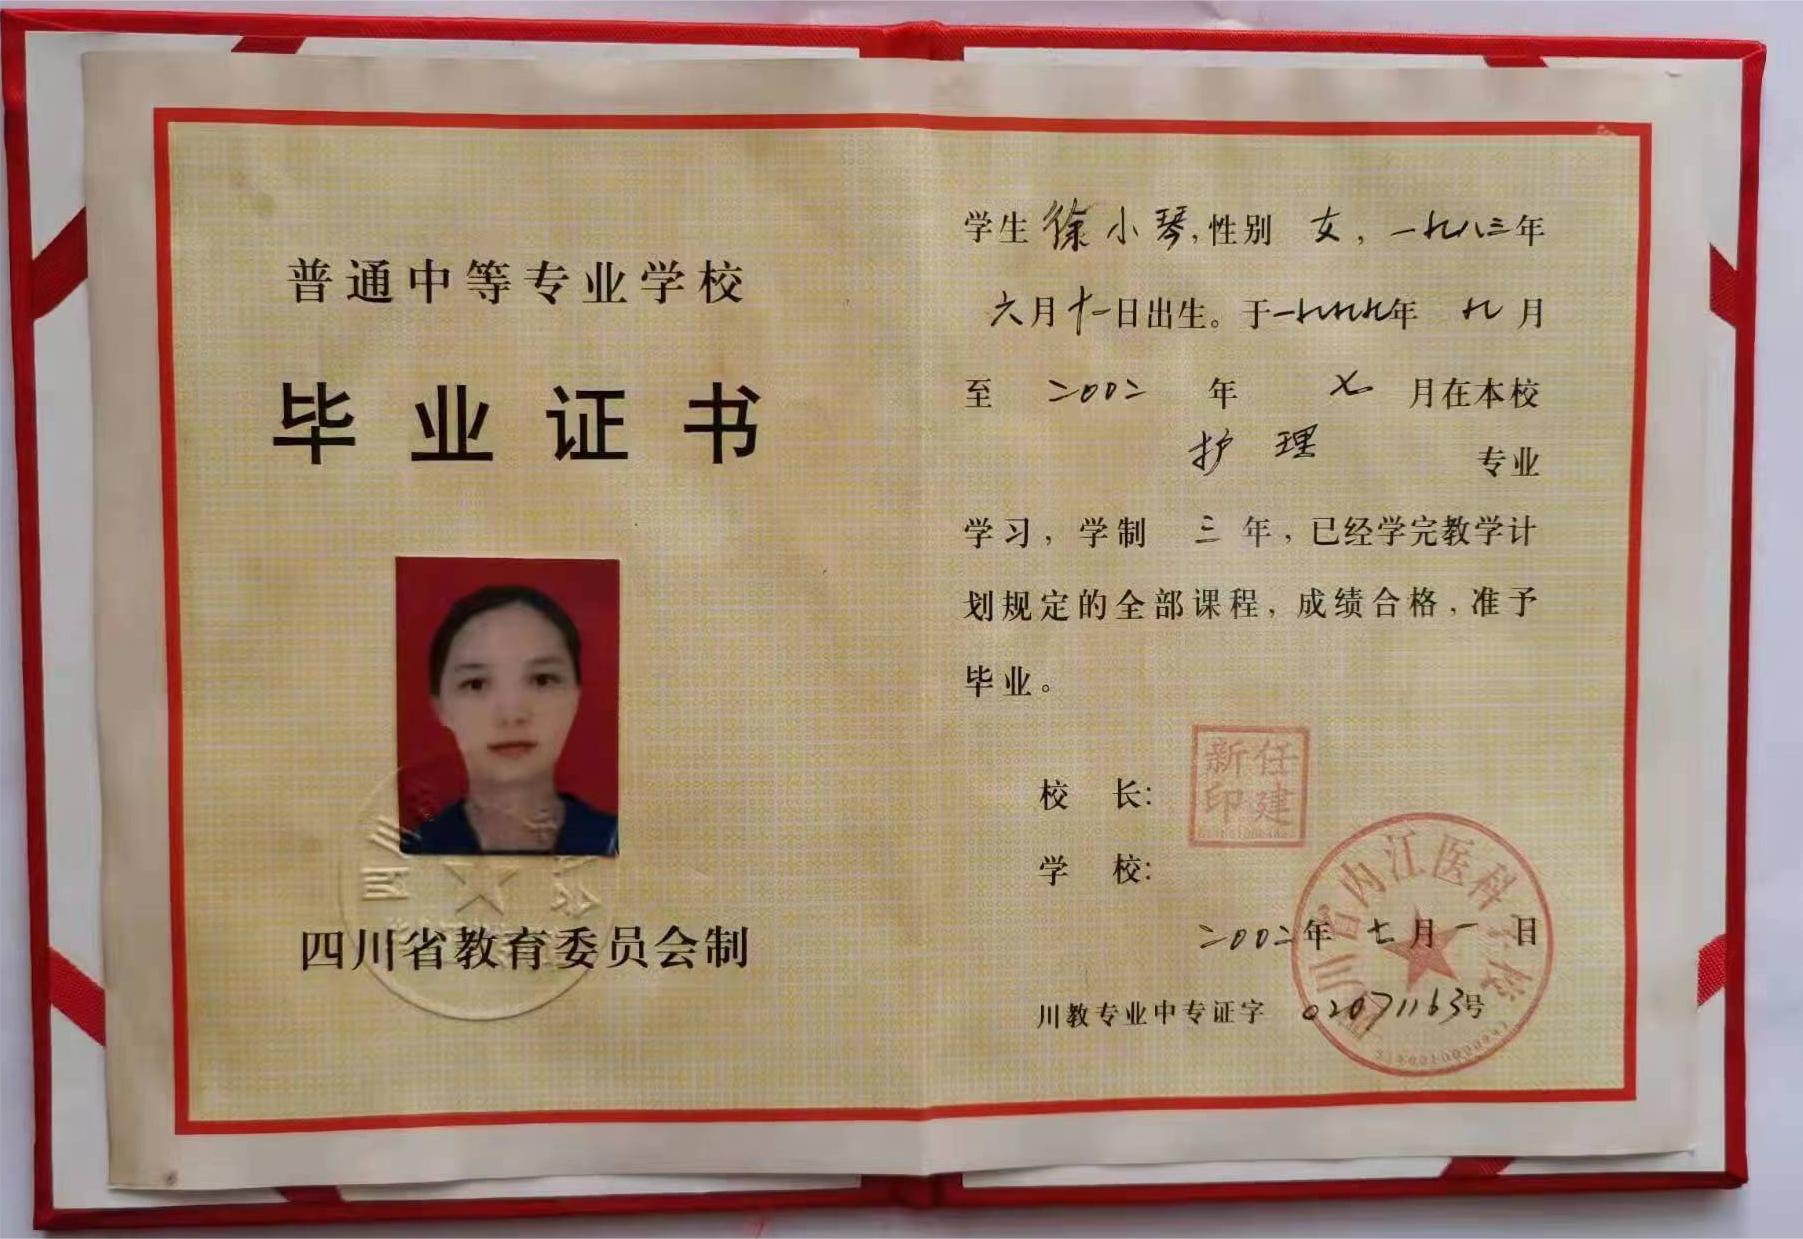 普通中等专业学校
毕业证书
四川省教育委员会制
学生 徐小琴，性别 女，一九八三年
六月十一日出生。于一九九九年 九月
至 二00二 年 七 月在本校
护理 专业
学习，学制 三 年，已经学完教学计
划规定的全部课程，成绩合格，准予
毕业。
校 长：
任建新印
学 校：
四川省内江医科学校
二00二年 七月一日
川教专业中专证字 02071163号